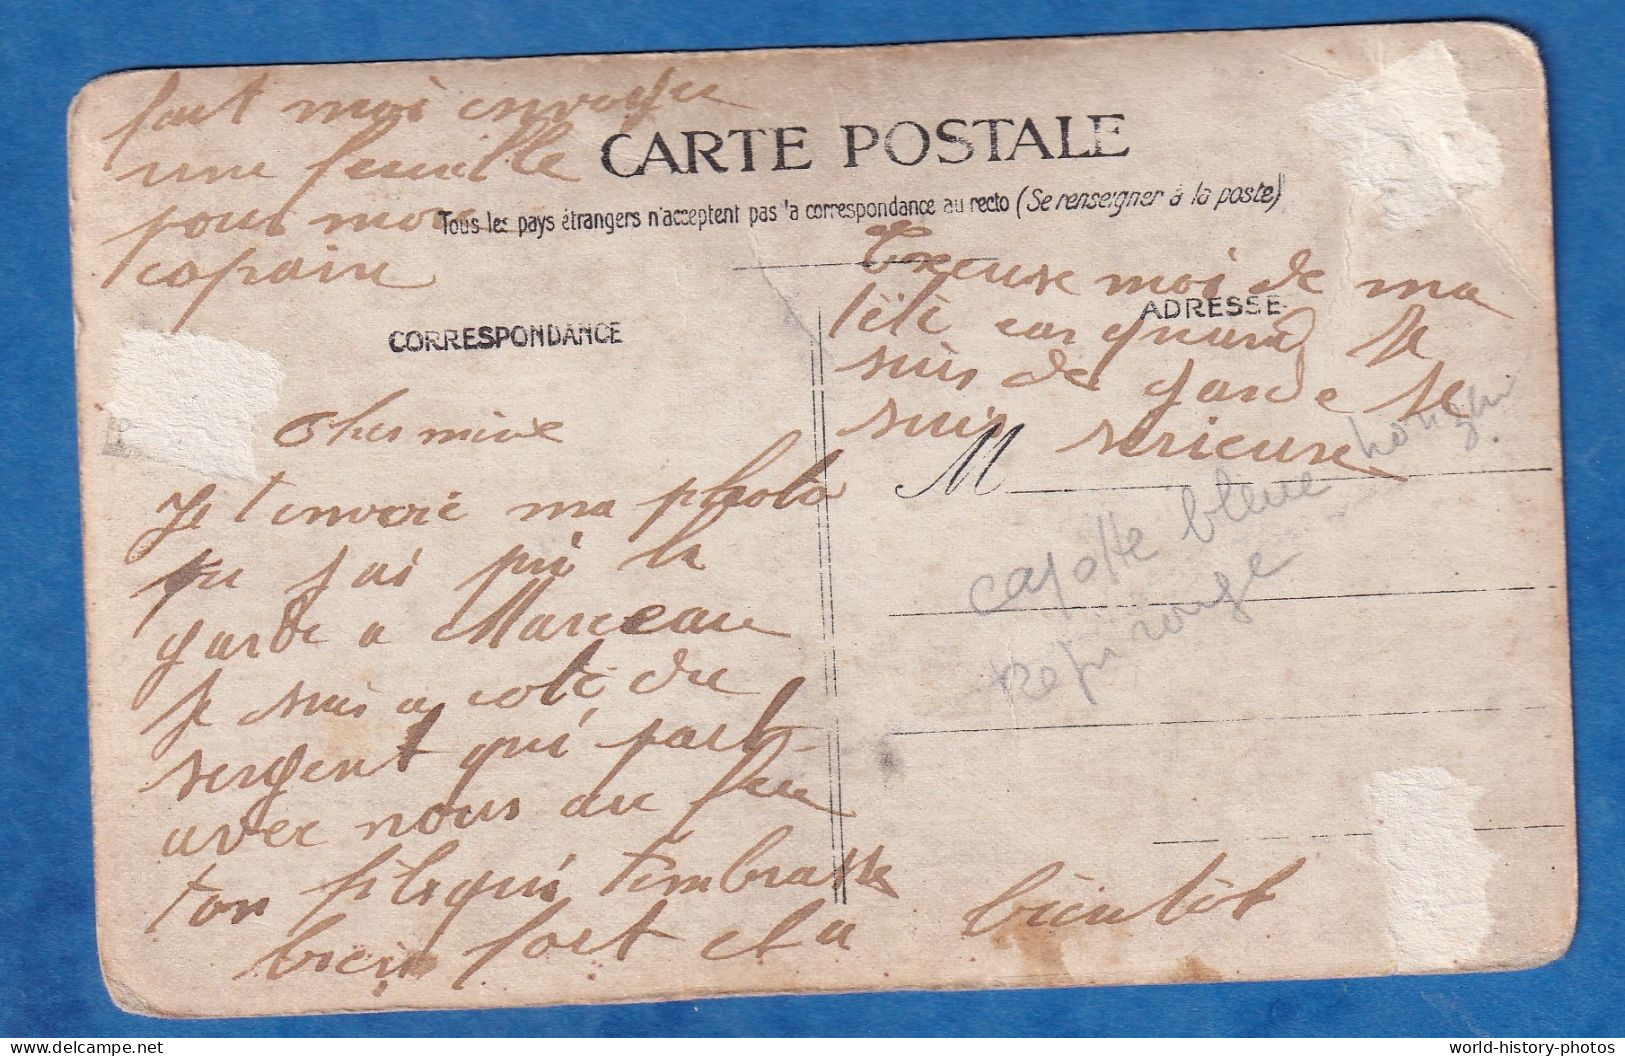 fait moi envoyer
une feuille
pour mon
copain
CARTE POSTALE
Tous les pays étrangers n'acceptent pas la correspondance au recto (Se renseigner à la poste)
CORRESPONDANCE
Cher mine
Je t'envoie ma photo
que j'ai pri la
garde a Marceau
Je suis a coté du
sergent qui part
avec nous au feu
ton fils qui t'embrasse
bien fort et a bientôt
ADRESSE
Excuse moi de ma
tété car quand Je
suis de garde Je
suis serieuse
M
capotte bleue
Kepi rouge
world-history-photos